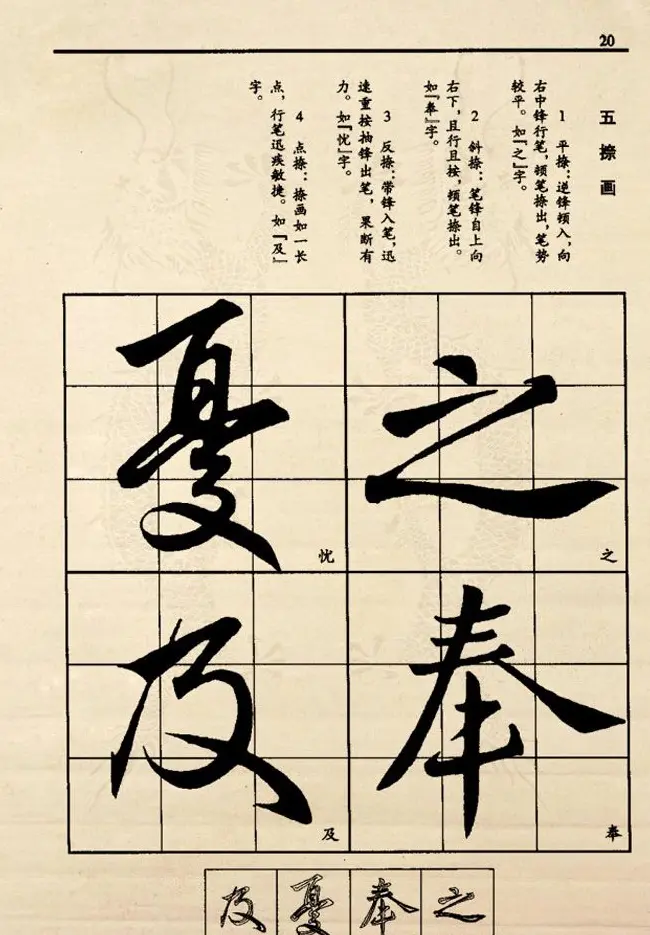 20
五 捺 画
1 平捺：逆锋顿入，向
右中锋行笔，顿笔捺出，笔势
较平。如『之』字。
2 斜捺：笔锋自上向
右下，且行且按，顿笔捺出。
如『奉』字。
3 反捺：带锋入笔，迅
速重按抽锋出笔，果断有
力。如『忧』字。
4 点捺：捺画如一长
点，行笔迅疾敏捷。如『及』
字。
之
之
奉
奉
憂
忧
及
及
之 奉 憂 及